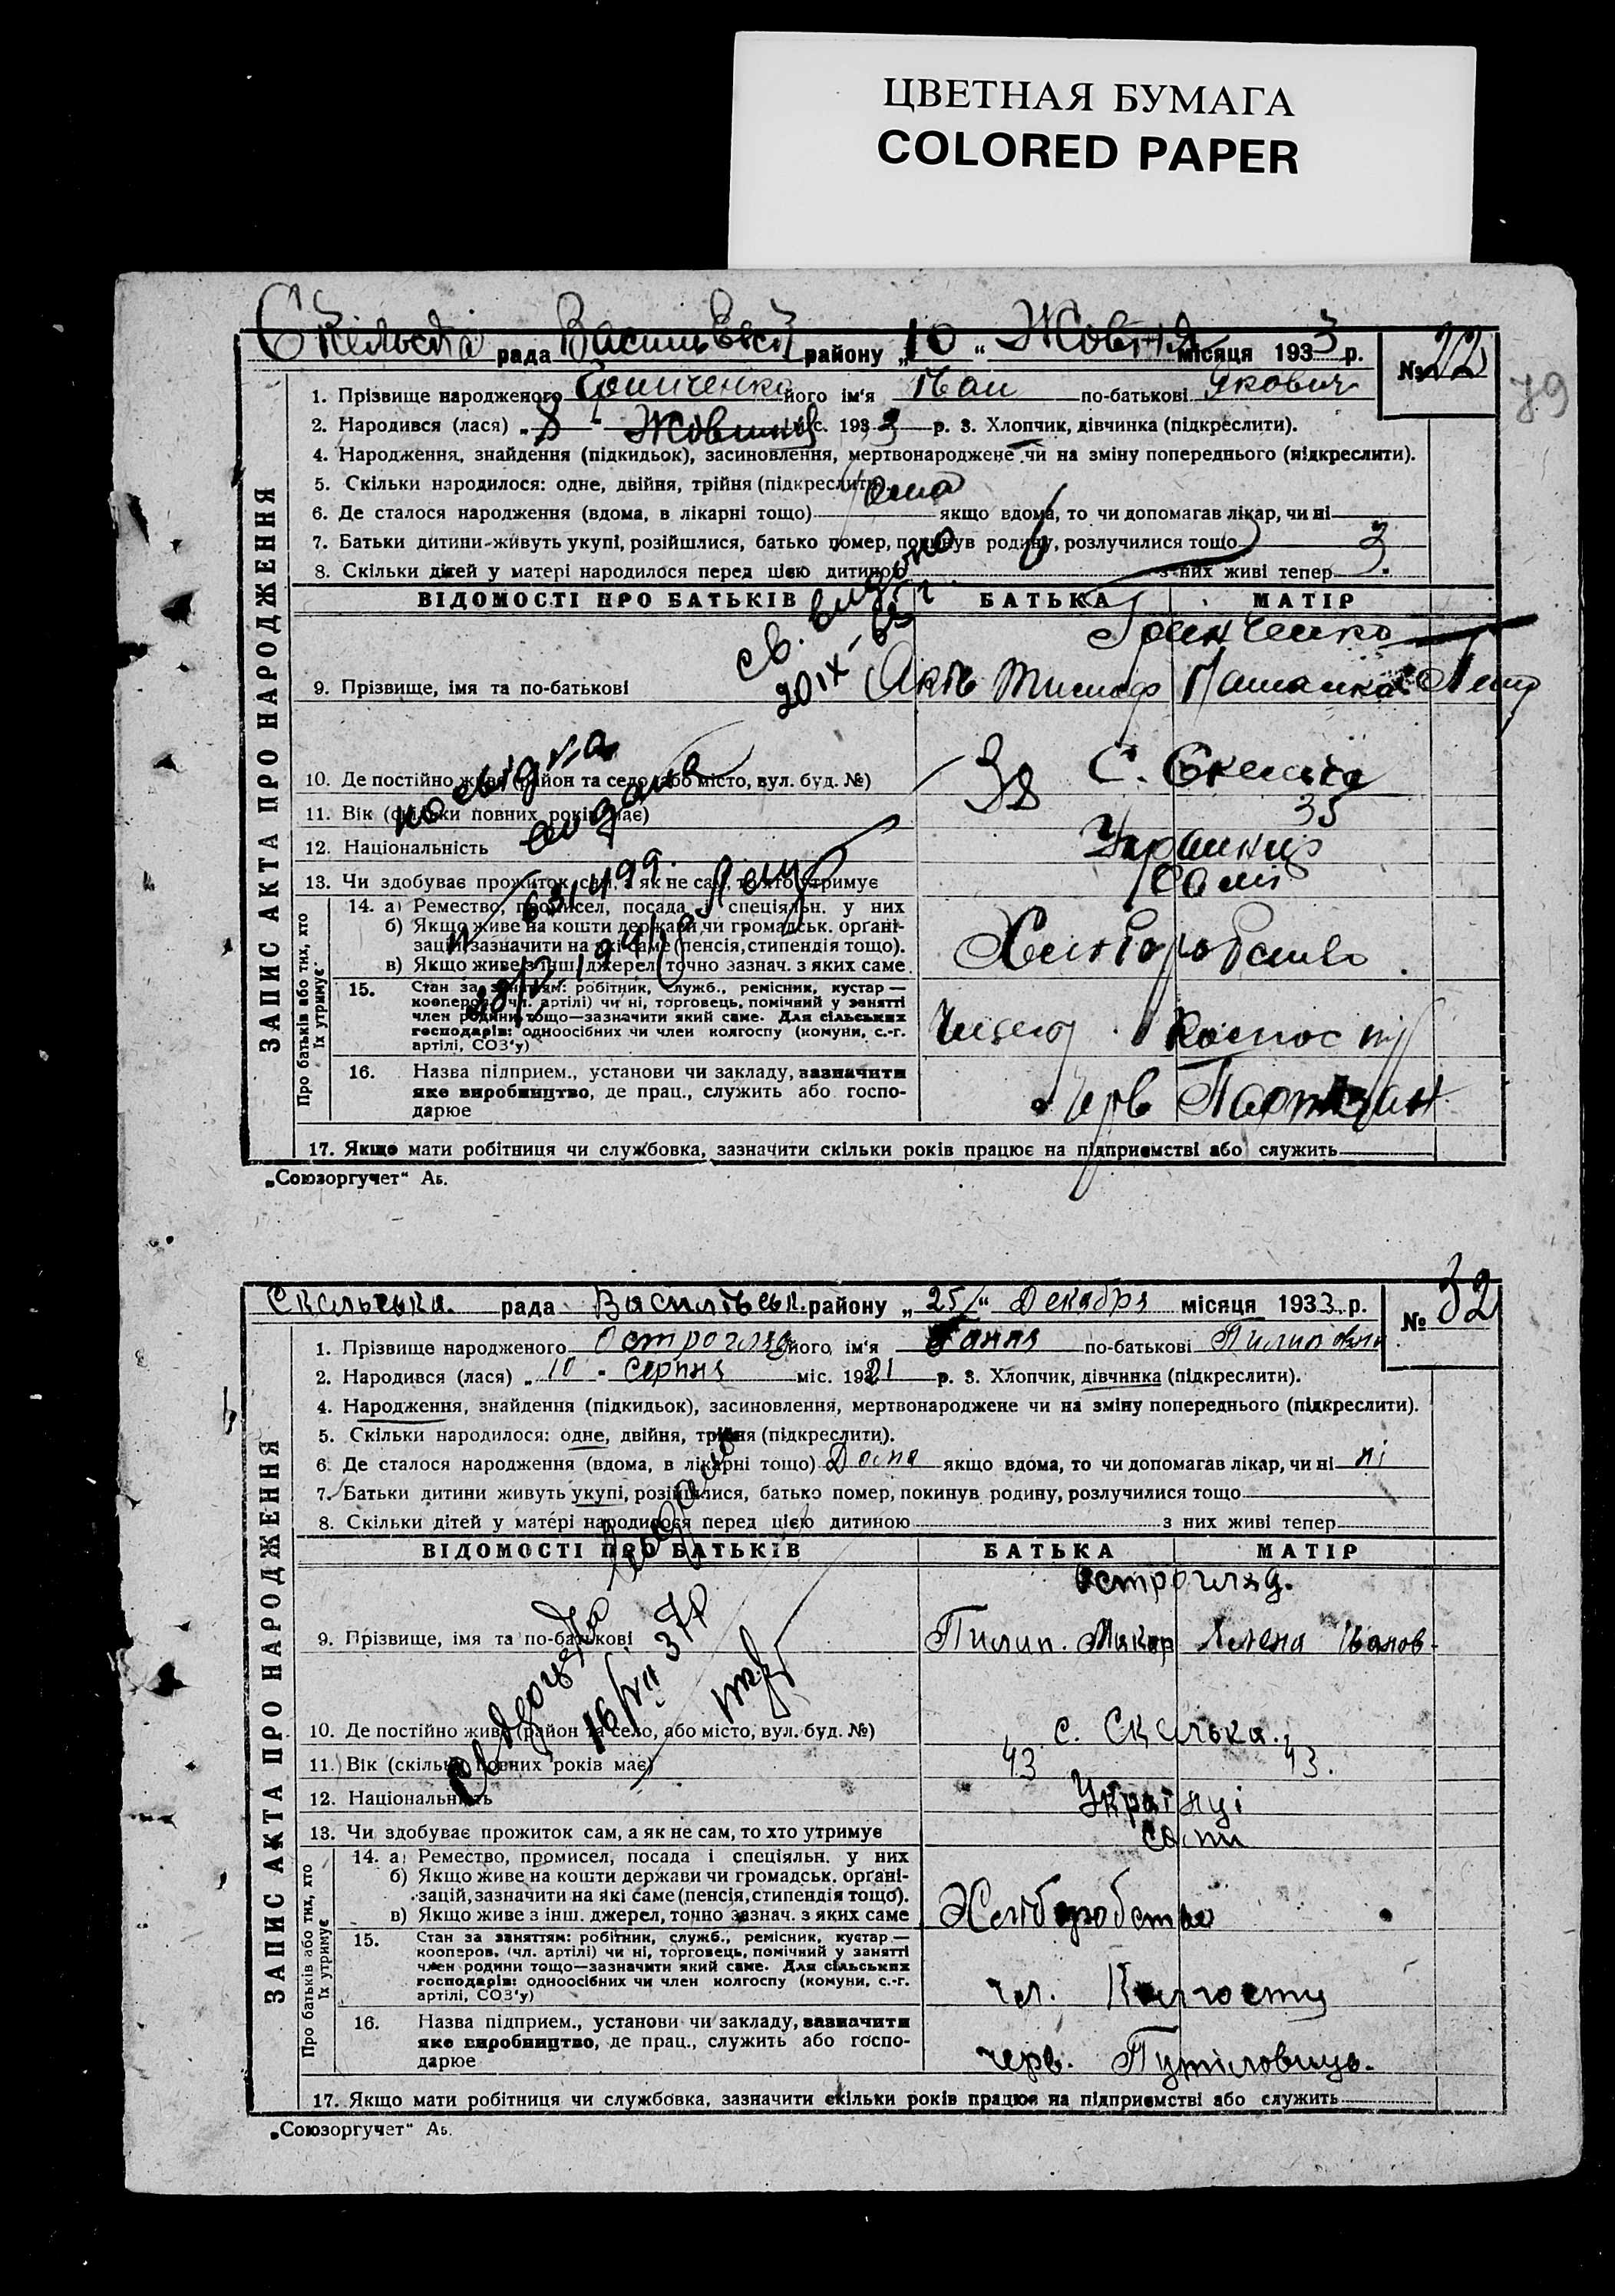 ЦВЕТНАЯ БУМАГА
COLORED PAPER
рада Васильвск району „10“ Жовтня місяця 1933 р. № 22
79
ЗАПИС АКТА ПРО НАРОДЖЕННЯ
1. Прізвище народженого його ім'я Іван по-батькові Якович
2. Народився (лася) „8“ Жовтня міс. 1933 р. 3. Хлопчик, дівчинка (підкреслити).
4. Народження, знайдення (підкидьок), засиновлення, мертвонароджене чи на зміну попереднього (підкреслити).
5. Скільки народилося: одне, двійня, трійня (підкреслити).
6. Де сталося народження (вдома, в лікарні тощо) якщо вдома, то чи допомагав лікар, чи ні
7. Батьки дитини живуть укупі, розійшлися, батько помер, покинув родину, розлучилися тощо
8. Скільки дітей у матері народилося перед цією дитиною 6 з них живі тепер 3
св. видано
20 IX-65 г
ВІДОМОСТІ ПРО БАТЬКІВ БАТЬКА МАТІР
Гринченко
9. Прізвище, імя та по-батькові Яків
10. Де постійно живе (район та село, або місто, вул. буд. №) С. Скелька
11. Вік (скільки повних років має) 38 35
12. Національність Українці
13. Чи здобуває прожиток сам, а як не сам, то хто утримує Самі
Про батьків або тих, хто їх утримує
14. а) Ремество, промисел, посада і спеціяльн. у них
б) Якщо живе на кошти держави чи громадськ. органі-
зацій, зазначити на які саме (пенсія, стипендія тощо).
в) Якщо живе з інш. джерел, точно зазнач. з яких саме
Хліборобство
15. Стан за заняттям: робітник, служб., ремісник, кустар —
кооперов. (чл. артілі) чи ні, торговець, помічний у занятті
член родини тощо—зазначити який саме. Для сільських
господарів: одноосібних чи член колгоспу (комуни, с.-г.
артілі, СОЗ'у)
16. Назва підприєм., установи чи закладу, зазначити
яке виробництво, де прац., служить або госпо-
дарює
Черв Партизан
17. Якщо мати робітниця чи службовка, зазначити скільки років працює на підприємстві або служить
„Союзоргучет“ Аб.
Скельська рада Василівськ. району „25“ Декабря місяця 1933 р. № 32
ЗАПИС АКТА ПРО НАРОДЖЕННЯ
1. Прізвище народженого Острогляд його ім'я Гання по-батькові Пилиповна
2. Народився (лася) „10“ Серпня міс. 1921 р. 3. Хлопчик, дівчинка (підкреслити).
4. Народження, знайдення (підкидьок), засиновлення, мертвонароджене чи на зміну попереднього (підкреслити).
5. Скільки народилося: одне, двійня, трійня (підкреслити).
6. Де сталося народження (вдома, в лікарні тощо) Дома якщо вдома, то чи допомагав лікар, чи ні ні
7. Батьки дитини живуть укупі, розійшлися, батько помер, покинув родину, розлучилися тощо
8. Скільки дітей у матері народилося перед цією дитиною з них живі тепер
ВІДОМОСТІ ПРО БАТЬКІВ БАТЬКА МАТІР
Острогляд.
9. Прізвище, імя та по-батькові Пилип. Макар Іванов
16/VII 37р
10. Де постійно живе (район та село, або місто, вул. буд. №) с. Скелька.
11. Вік (скільки повних років має) 43 43.
12. Національність Українці
13. Чи здобуває прожиток сам, а як не сам, то хто утримує сами
Про батьків або тих, хто їх утримує
14. а) Ремество, промисел, посада і спеціяльн. у них
б) Якщо живе на кошти держави чи громадськ. органі-
зацій, зазначити на які саме (пенсія, стипендія тощо).
в) Якщо живе з інш. джерел, точно зазнач. з яких саме
Хліборобство
15. Стан за заняттям: робітник, служб., ремісник, кустар —
кооперов. (чл. артілі) чи ні, торговець, помічний у занятті
член родини тощо—зазначити який саме. Для сільських
господарів: одноосібних чи член колгоспу (комуни, с.-г.
артілі, СОЗ'у)
чл. Колгоспу
16. Назва підприєм., установи чи закладу, зазначити
яке виробництво, де прац., служить або госпо-
дарює
черв. Путіловиць.
17. Якщо мати робітниця чи службовка, зазначити скільки років працює на підприємстві або служить
„Союзоргучет“ Аб.